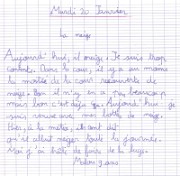 Mardi 20 Janvier
La neige
Aujourd'hui, il neige. Je suis trop
contente. Dans la cour, il y a au moins
la moitié de la cour recouverte de
neige. Bon il n'y en a pas beaucoup
mais bon c'est déjà ça. Aujourd'hui je
suis venue avec mes bottes de neige.
Hier, à la météo, ils ont dit
qu'il allait neiger toute la journée.
Moi j'ai hâte de faire de la luge.